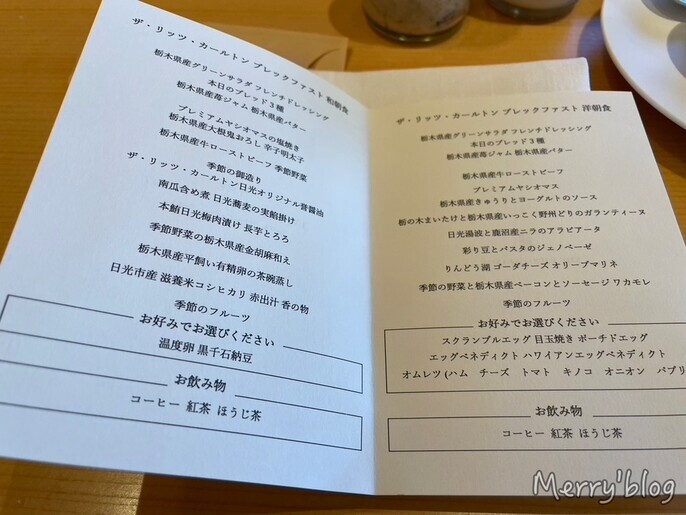 ザ・リッツ・カールトン ブレックファスト 和朝食
栃木県産グリーンサラダ フレンチドレッシング
本日のブレッド3種
栃木県産苺ジャム 栃木県産バター
プレミアムヤシオマスの塩焼き
栃木県産大根鬼おろし 辛子明太子
栃木県産牛ローストビーフ 季節野菜
季節の御造り
ザ・リッツ・カールトン日光オリジナル醤醤油
南瓜含め煮 日光蕎麦の実餡掛け
本鮪日光梅肉漬け 長芋とろろ
季節野菜の栃木県産金胡麻和え
栃木県産平飼い有精卵の茶碗蒸し
日光市産 滋養米コシヒカリ 赤出汁 香の物
季節のフルーツ
お好みでお選びください
温度卵 黒千石納豆
お飲み物
コーヒー 紅茶 ほうじ茶
ザ・リッツ・カールトン ブレックファスト 洋朝食
栃木県産グリーンサラダ フレンチドレッシング
本日のブレッド3種
栃木県産苺ジャム 栃木県産バター
栃木県産牛ローストビーフ
プレミアムヤシオマス
栃木県産きゅうりとヨーグルトのソース
栃の木まいたけと栃木県産いっこく野州どりのガランティーヌ
日光湯波と鹿沼産ニラのアラビアータ
彩り豆とパスタのジェノベーゼ
りんどう湖 ゴーダチーズ オリーブマリネ
季節の野菜と栃木県産ベーコンとソーセージ ワカモレ
季節のフルーツ
お好みでお選びください
スクランブルエッグ 目玉焼き ポーチドエッグ
エッグベネディクト ハワイアンエッグベネディクト
オムレツ (ハム チーズ トマト キノコ オニオン パプリ
お飲み物
コーヒー 紅茶 ほうじ茶
Merry'blog